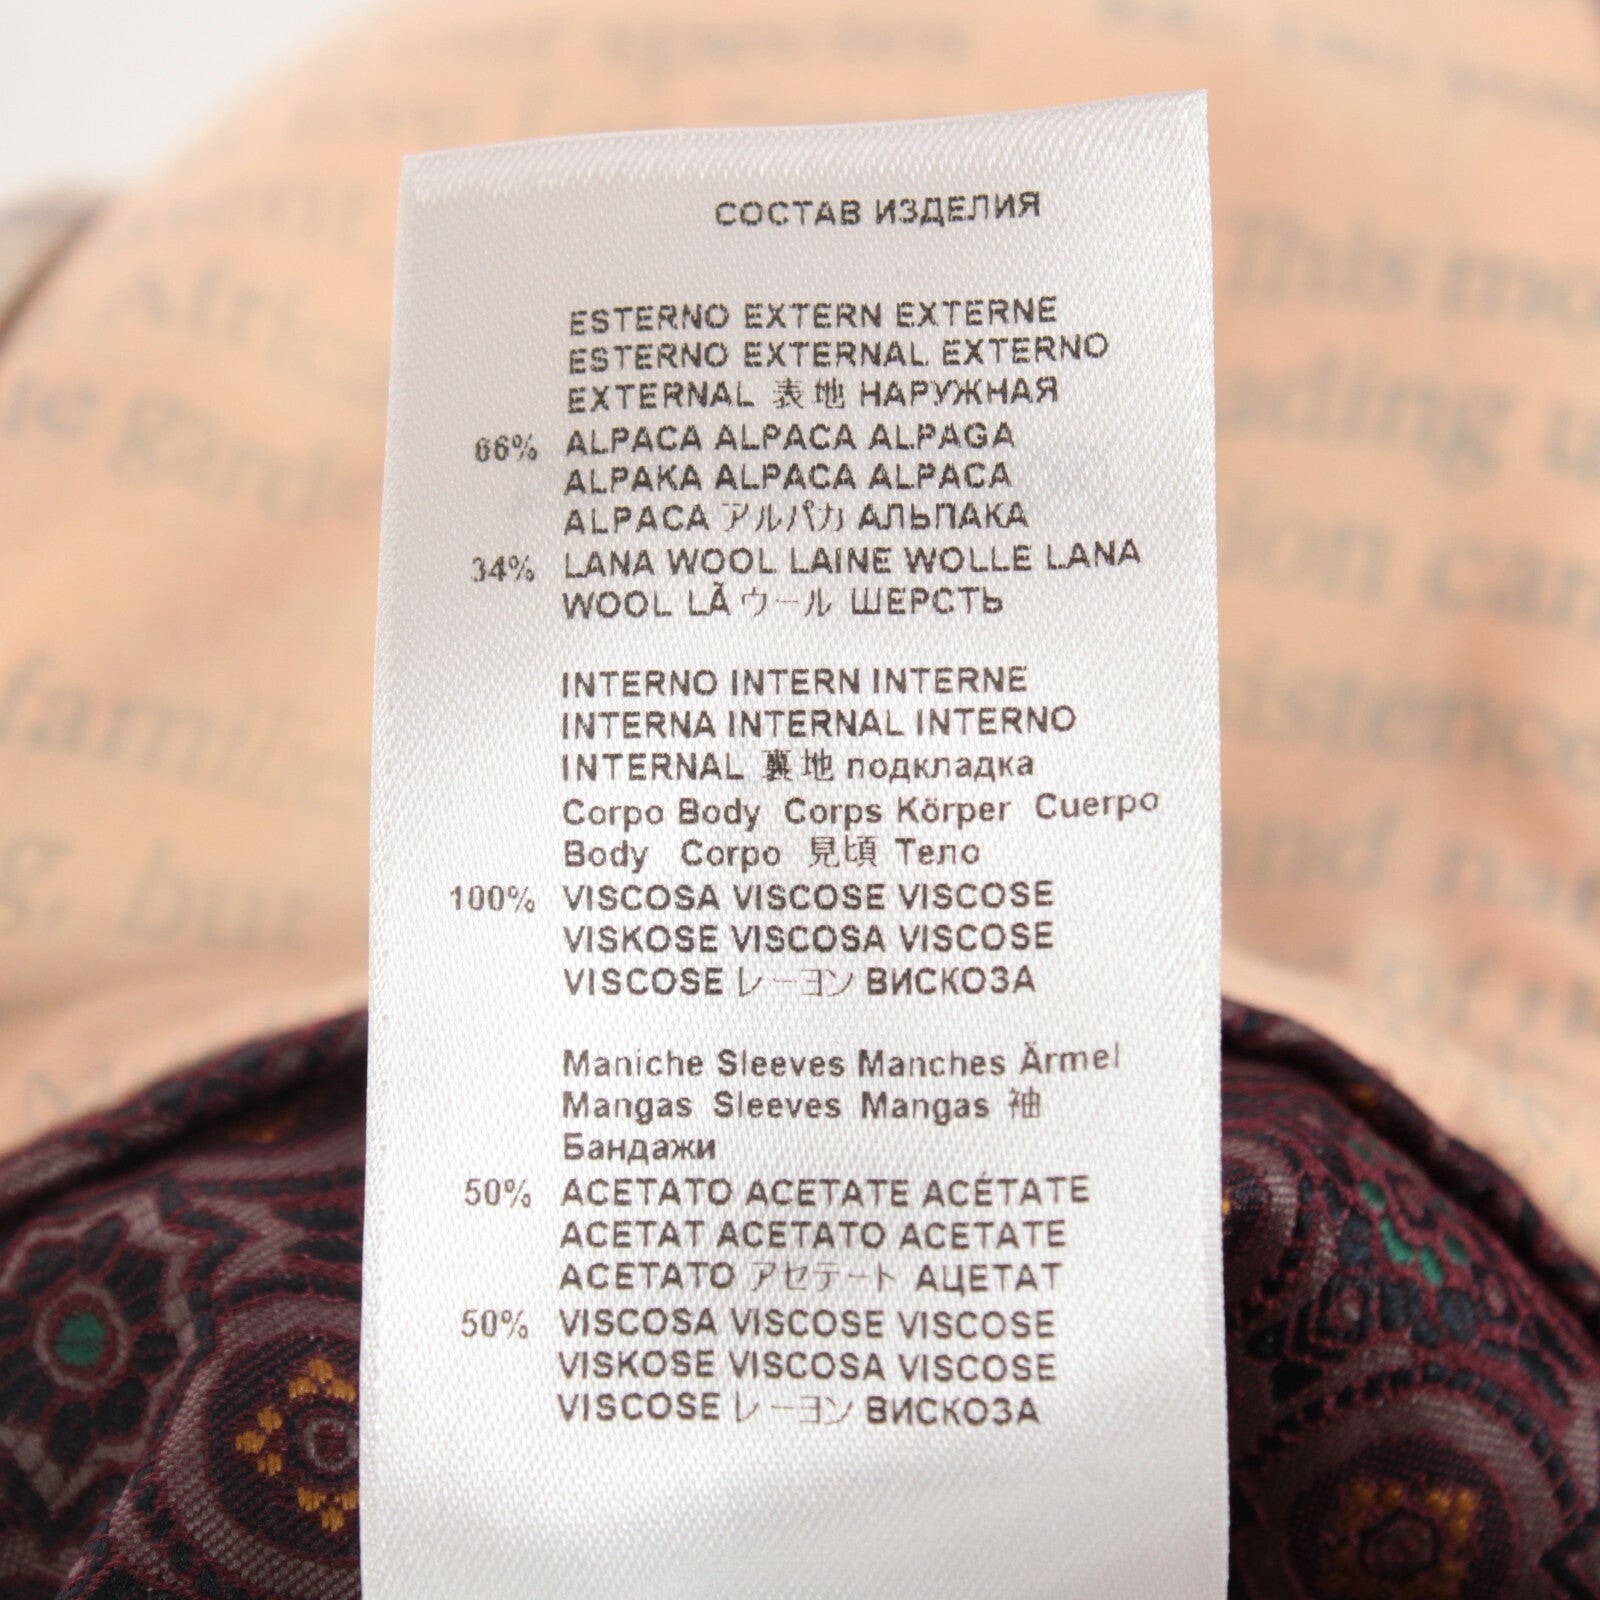 СОСТАВ ИЗДЕЛИЯ
ESTERNO EXTERN EXTERNE
ESTERNO EXTERNAL EXTERNO
EXTERNAL 表地 НАРУЖНАЯ
66% ALPACA ALPACA ALPAGA
ALPAKA ALPACA ALPACA
ALPACA アルパカ АЛЬПАКА
34% LANA WOOL LAINE WOLLE LANA
WOOL LÃ ウール ШЕРСТЬ
INTERNO INTERN INTERNE
INTERNA INTERNAL INTERNO
INTERNAL 裏地 подкладка
Corpo Body Corps Körper Cuerpo
Body Corpo 見頃 Тело
100% VISCOSA VISCOSE VISCOSE
VISKOSE VISCOSA VISCOSE
VISCOSE レーヨン ВИСКОЗА
Maniche Sleeves Manches Ärmel
Mangas Sleeves Mangas 袖
Бандажи
50% ACETATO ACETATE ACÉTATE
ACETAT ACETATO ACETATE
ACETATO アセテート АЦЕТАТ
50% VISCOSA VISCOSE VISCOSE
VISKOSE VISCOSA VISCOSE
VISCOSE レーヨン ВИСКОЗА